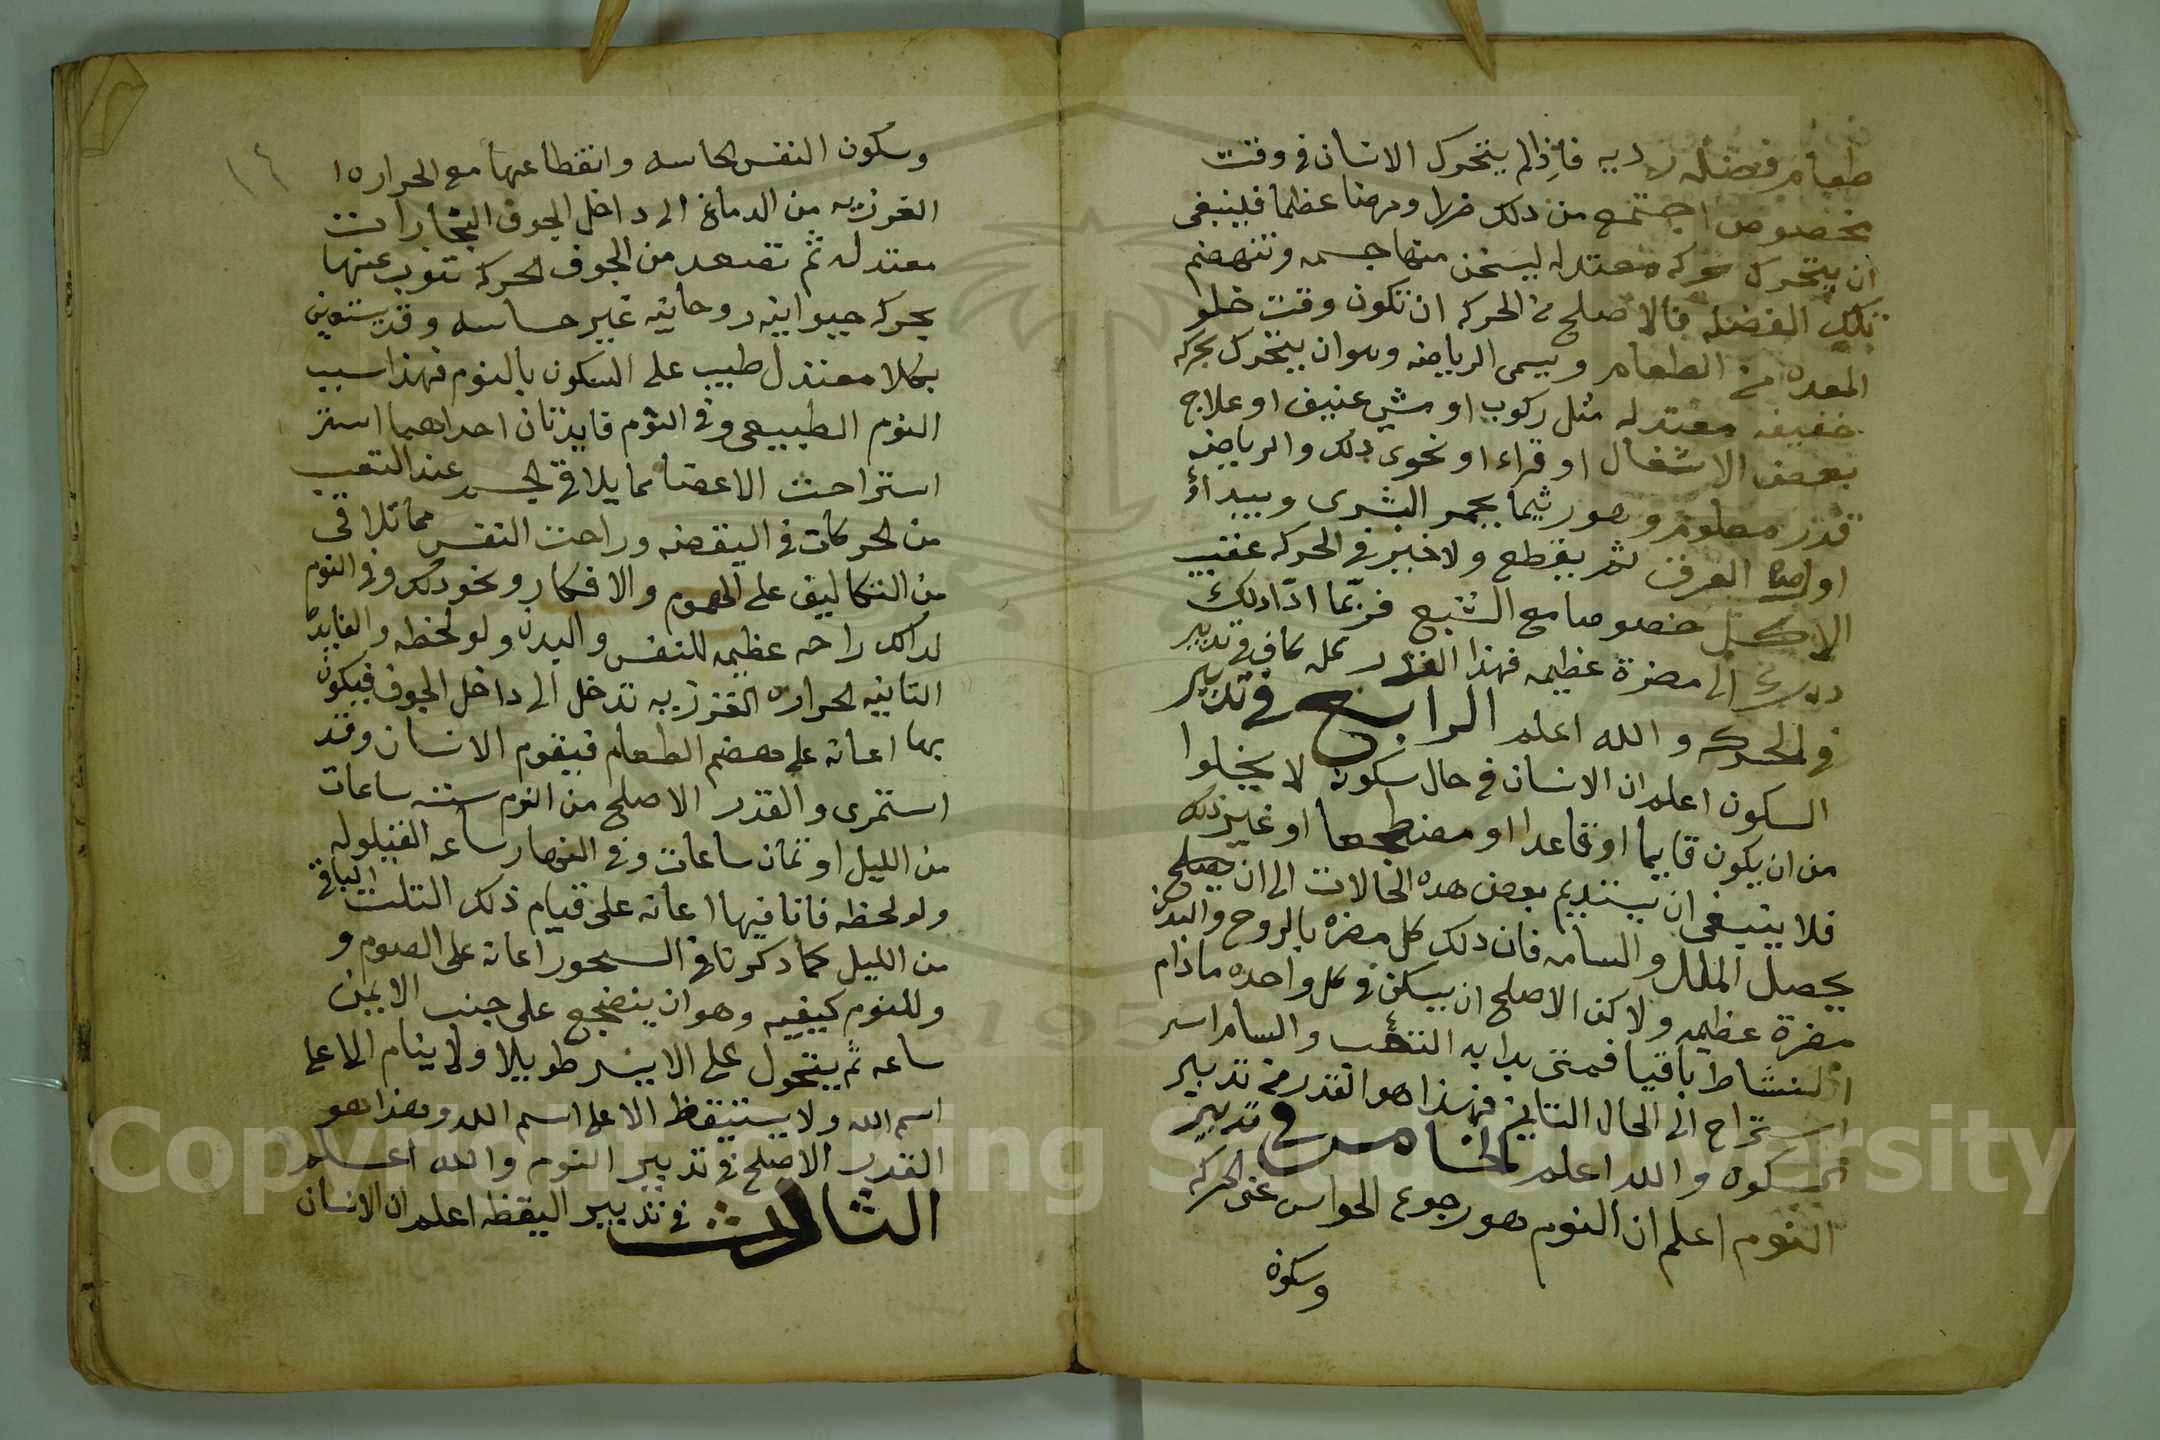 طعام فضله رديه فاذا لم يتحرك الانسان فى وقت
مخصوص اجتمع من دلك ضررا ومرضا عظيما فلينبغى
ان يتحرك حركه معتدله ليسخن منها جسمه وتنهضم
تلك الفضله فالاصلح من الحركه ان تكون وقت خلو
المعده من الطعام ويسمى الرياضه وهو ان يتحرك بحركه
خفيفه معتدله مثل ركوب او مشى عنيف او علاج
بعض الاشغال او قراء او نحوى دلك والرياضه
قدر معلوم وهو ريثما يحمر البشرى ويبداؤ
اوايل العرق ثم يقطع ولا خير فى الحركه عقيب
الاكل خصوصا مع الشبع فربما ادّا دلك
الى مضرة عظيمه فهذا القدر كله كافى فى تدبير
فى الحركه والله اعلم الرابع فى تدبير
السكون اعلم ان الانسان فى حال سكونه لا يخلوا
من ان يكون قايما او قاعدا او مضطجعا او غير ذلك
فلا ينبغى ان يستديم بعض هده الحالات الى ان
يحصل الملل والسامه فان دلك كل مضره بالروح والبدن
مضرة عظيمه ولاكن الاصلح ان يسكن فى كل واحده مادام
النشاط باقيا فمتى بدا به التعب والسام استر
استراح الى الحال الثانى فهذا هو القدر من تدبير
السكون والله اعلم الخامس فى تدبير
النوم اعلم ان النوم هو رجوع الحواس عن الحركه
وسكون
١٤
وسكون النفس الحاسه وانقطاعها مع الحراره ا
الغرزيه من الدماغ الى داخل الجوف البخارات
معتدله ثم تصعد من الجوف لحركه تنوب عنها
بحركه حيوانيه روحانيه غير حاسه وقد
بكلا معتدل طيب على السكون بالنوم فهذا سبب
النوم الطبيعى وفى النوم فايدتان احداهما استر
استراحت الاعضا مما يلاقى الجسد عند التعب
من الحركات فى اليقضه وراحت النفس مما تلاقى
من التكاليف على الهموم والافكار ونحو دلك وفى النوم
لداك راحه عظيمه للنفس والبدن ولو لحظه والفايدة
الثانيه الحراره الغرزيه تدخل الى داخل الجوف فيكون
بها اعانه على هضم الطعام فيقوم الانسان وقد
استمرى والقدر الاصلح من النوم سته ساعات
من الليل او ثمان ساعات وفى النهار ساعه القيلوله
ولو لحظه فانا فيها اعانه على قيام ذلك الثلث الباقى
من الليل كما ذكرنا فى السحور اعانه على الصوم و
وللنوم كيفيه وهو ان ينضجع على جنب الايمن
ساعه ثم يتحول على الايسر طويلا ولا ينام الا على
اسم الله ولا يستيقظ الا على اسم الله وهذا هو
القدر الاصلح فى تدبير النوم والله اعلم
الثالث فى تدبير اليقظه اعلم ان الانسان
Copyright © King Saud University
1957